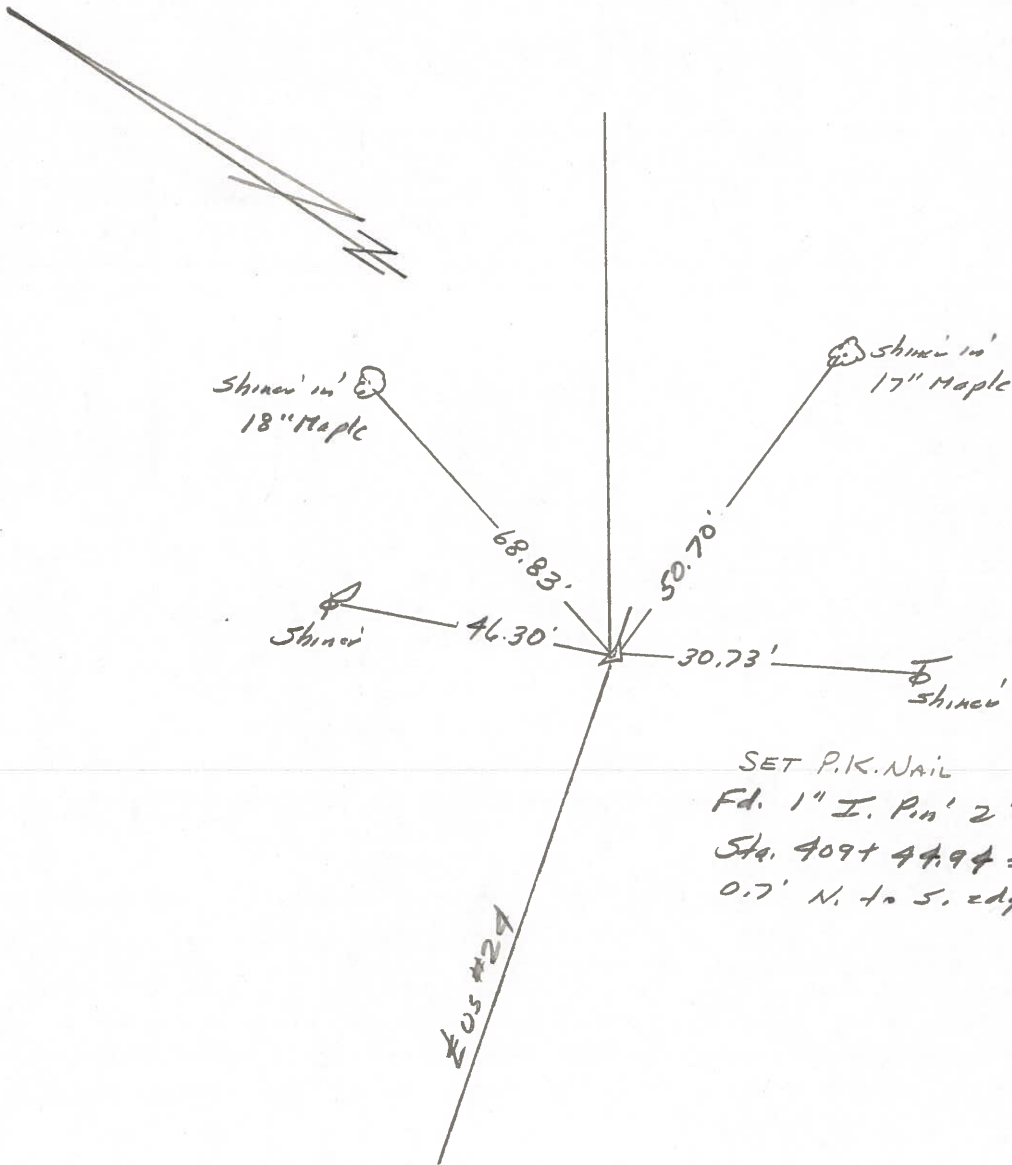 Shiner in
18" Maple
Shiner in
17" Maple
68.83'
50.70'
Shiner
46.30'
30.73'
Shiner
SET P.K. NAIL
Fd. 1" I. Pin 2
Sta. 409+44.94 =
0.7' N. to S. edg
℄ US #24